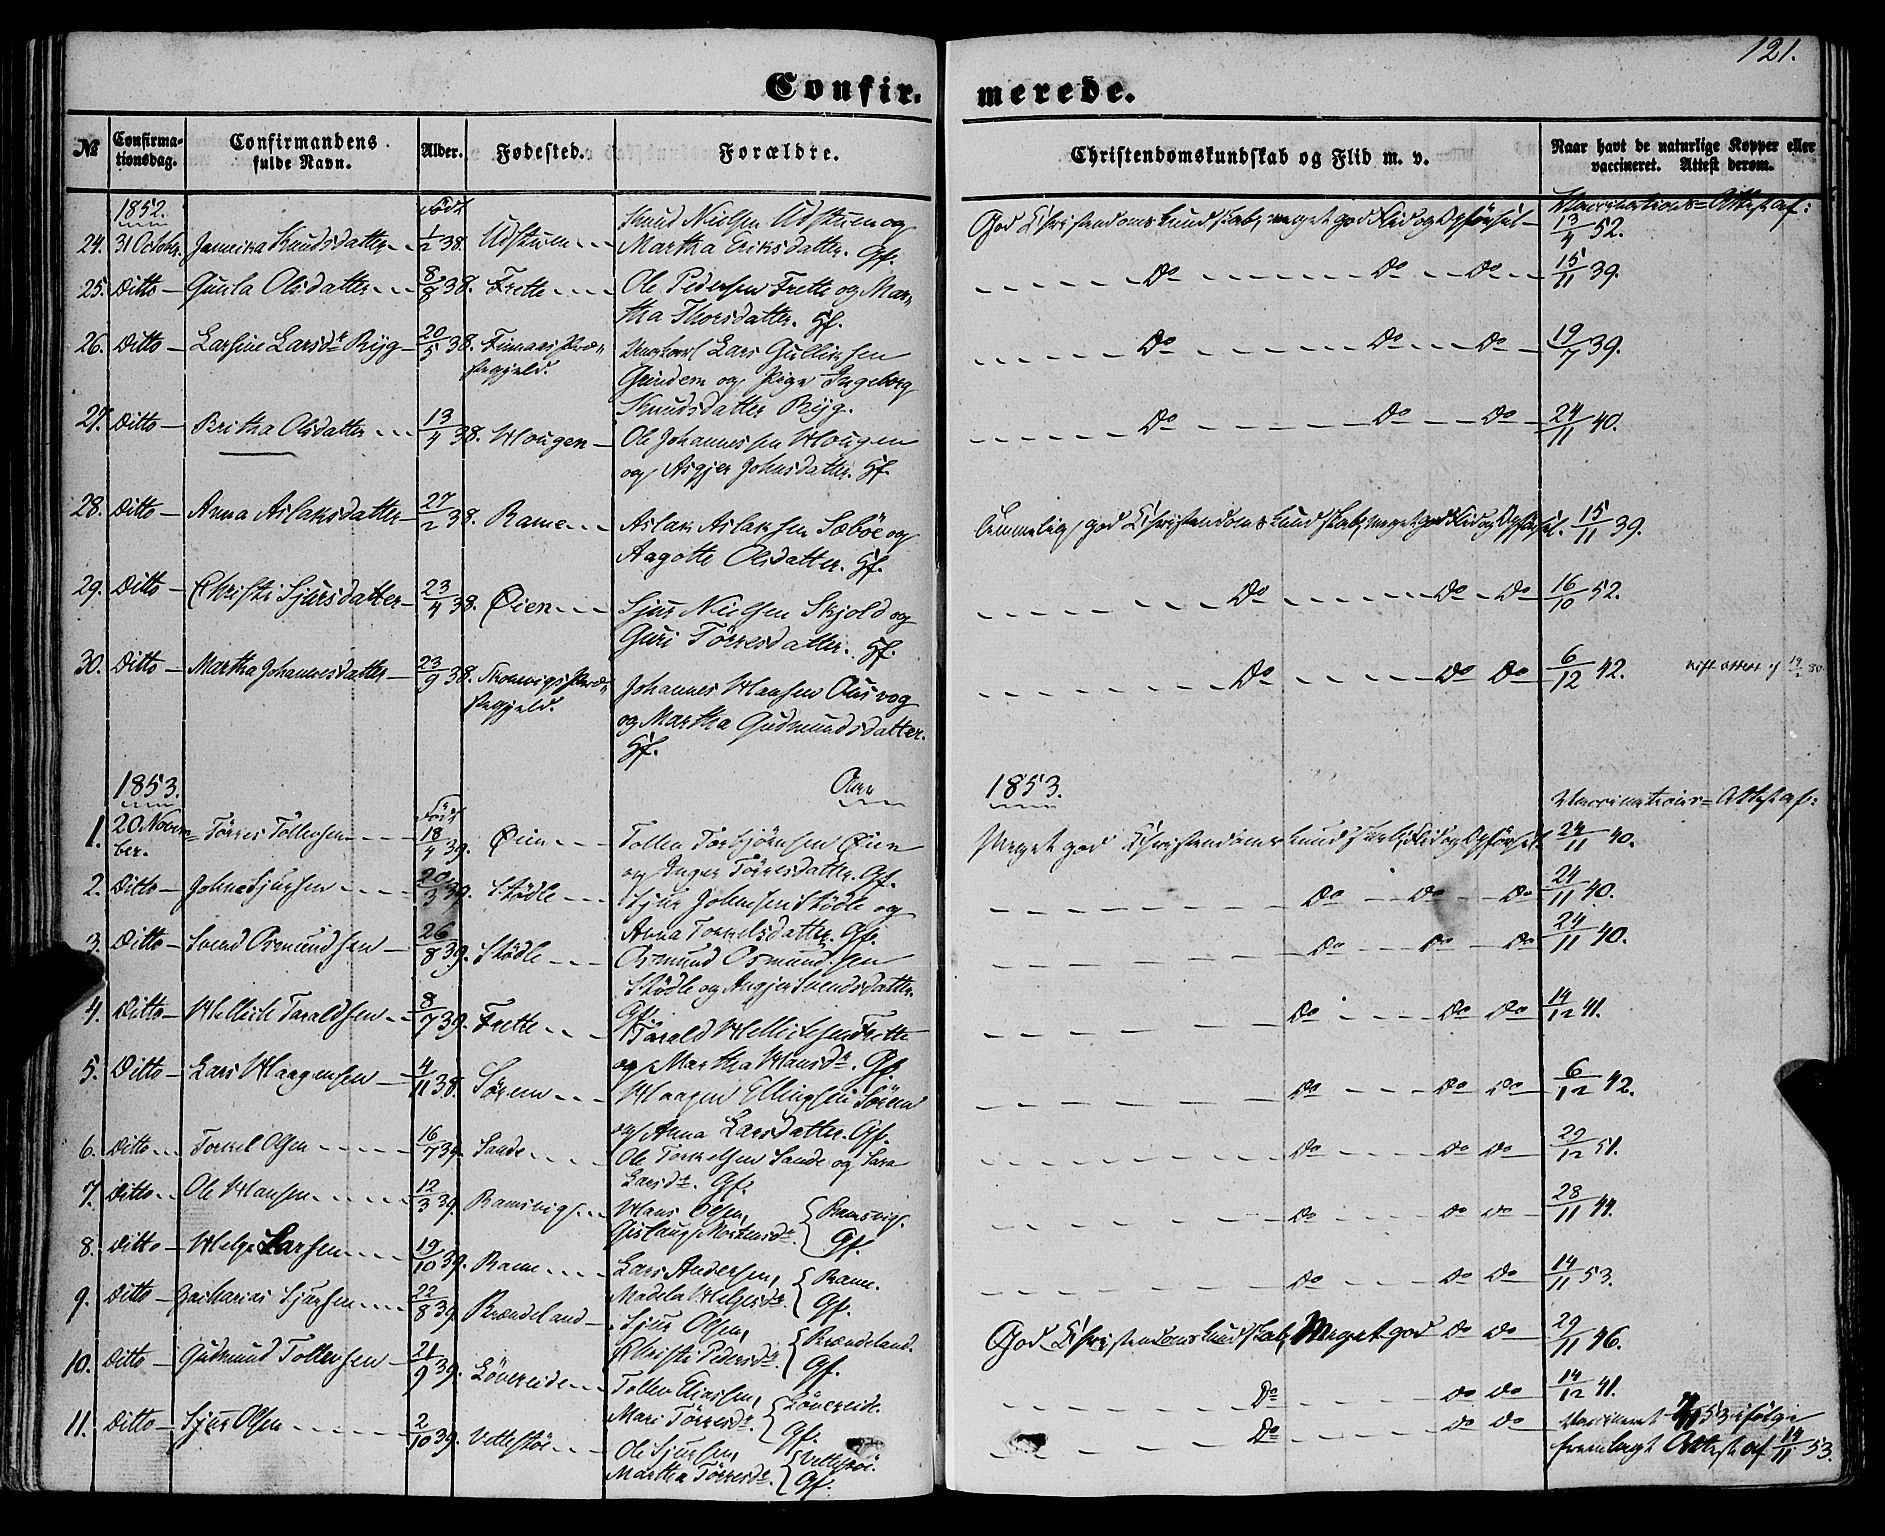 121.
Confir. merede.
№ Confirmationsdag. Confirmandens fulde Navn. Alder. Fødested. Forældre. Christendomskundskab og Flid m. v. Naar havt de naturlige Kopper eller vaccineret. Attest derom.
1852. Født Vaccinations=Attest af:
24. 31 October. Knudsdatter 1/2 38. Udstuen Knud Nielsen Udstuen og Martha Eriksdatter. Gf. God Christendomskundskab, meget god Flid og Opførsel 13/4 52.
25. Ditto Gunla Olsdatter 8/8 38. Frette Ole Pedersen Frette og Martha Thorsdatter. Gf. Do Do Do 15/11 39.
26. Ditto Larsine Larsdr Ryg 20/5 38. Finnaas Præstegjeld. Ungkarl Lars Gulliksen og Pige Ingeborg Knudsdatter Ryg. Do Do Do 19/7 39.
27. Ditto Britha Olsdatter 13/4 38. Hougen Ole Johannessen Hougen og Asgjer Johnsdatter. Gf. Do Do Do 24/11 40.
28. Ditto Anna Aslaksdatter 27/2 38. Rame Aslak Aslaksen Sæbøe og Aagotte Olsdatter. Gf. Temmelig god Christendomskundskab, meget god Flid og Opførsel. 15/11 39.
29. Ditto Christi Sjursdatter 23/4 38. Øien Sjur Nielsen Skjold og Guri Tørresdatter. Gf. Do Do Do 16/10 52.
30. Ditto Martha Johannesdatter 23/9 38. Præstegjeld. Johannes Hansen og Martha Gudmundsdatter. Gf. Do Do Do 6/12 42.
1853. 1853.
Født Vaccinations=Attest af:
1. 20. November. Tørres Tollevsen 18/4 39. Øien Tollev Torbjørnsen Øien og Inger Tørresdatter. Gf. Meget god Christendomskundskab, Flid og Opførsel 24/11 40.
2. Ditto John Sjursen 20/3 39. Stødle Sjur Johnsen Stødle og Anna Torkelsdatter. Gf. Do Do Do 24/11 40.
3. Ditto Svend Osmundsen 26/8 39. Stødle Osmund Osmundsen Stødle og Angjer Svendsdatter. Gf. Do Do Do 24/11 40.
4. Ditto Hellich Taraldsen 8/7 39. Frette Tarald Hellichsen Frette og Martha Hansdr. Gf. Do Do Do 14/12 41.
5. Ditto Lars Haagensen 4/11 38. Sørem Haagen Ellingsen Sørem og Anna Larsdatter. Gf. Do Do Do 6/12 42.
6. Ditto Torkel Olsen 16/7 39. Sande Ole Torkelsen Sande og Sara Larsdr. Gf. Do Do Do 29/12 51.
7. Ditto Ole Hansen 12/3 39. Ramsvig Hans Olsen, Gislaug Mortensdr. Ramsvig. Gf. Do Do Do 28/11 44.
8. Ditto Helge Larsen 19/10 39. Rame Lars Andersen, Madela Helgesdr. Rame. Gf. Do Do Do 14/11 53.
9. Ditto Zacharias Sjursen 22/8 39. Brændeland Sjur Olsen, Christi Pedersdr. Brændeland. Gf. God Christendomskundskab, Meget god Do Do 29/11 46.
10. Ditto Gudmund Tollevsen 21/9 39. Løvereide Tollev Eliassen, Mari Tørresdr. Løvereide. Gf. Do Do Do 14/12 41.
11. Ditto Sjur Olsen 2/10 39. Vettestøe Ole Sjursen, Martha Tørresdr. Vettestøe. Gf. Do Do Do Vaccineret 53 ifølge fremlagt Attest af 14/11 53.